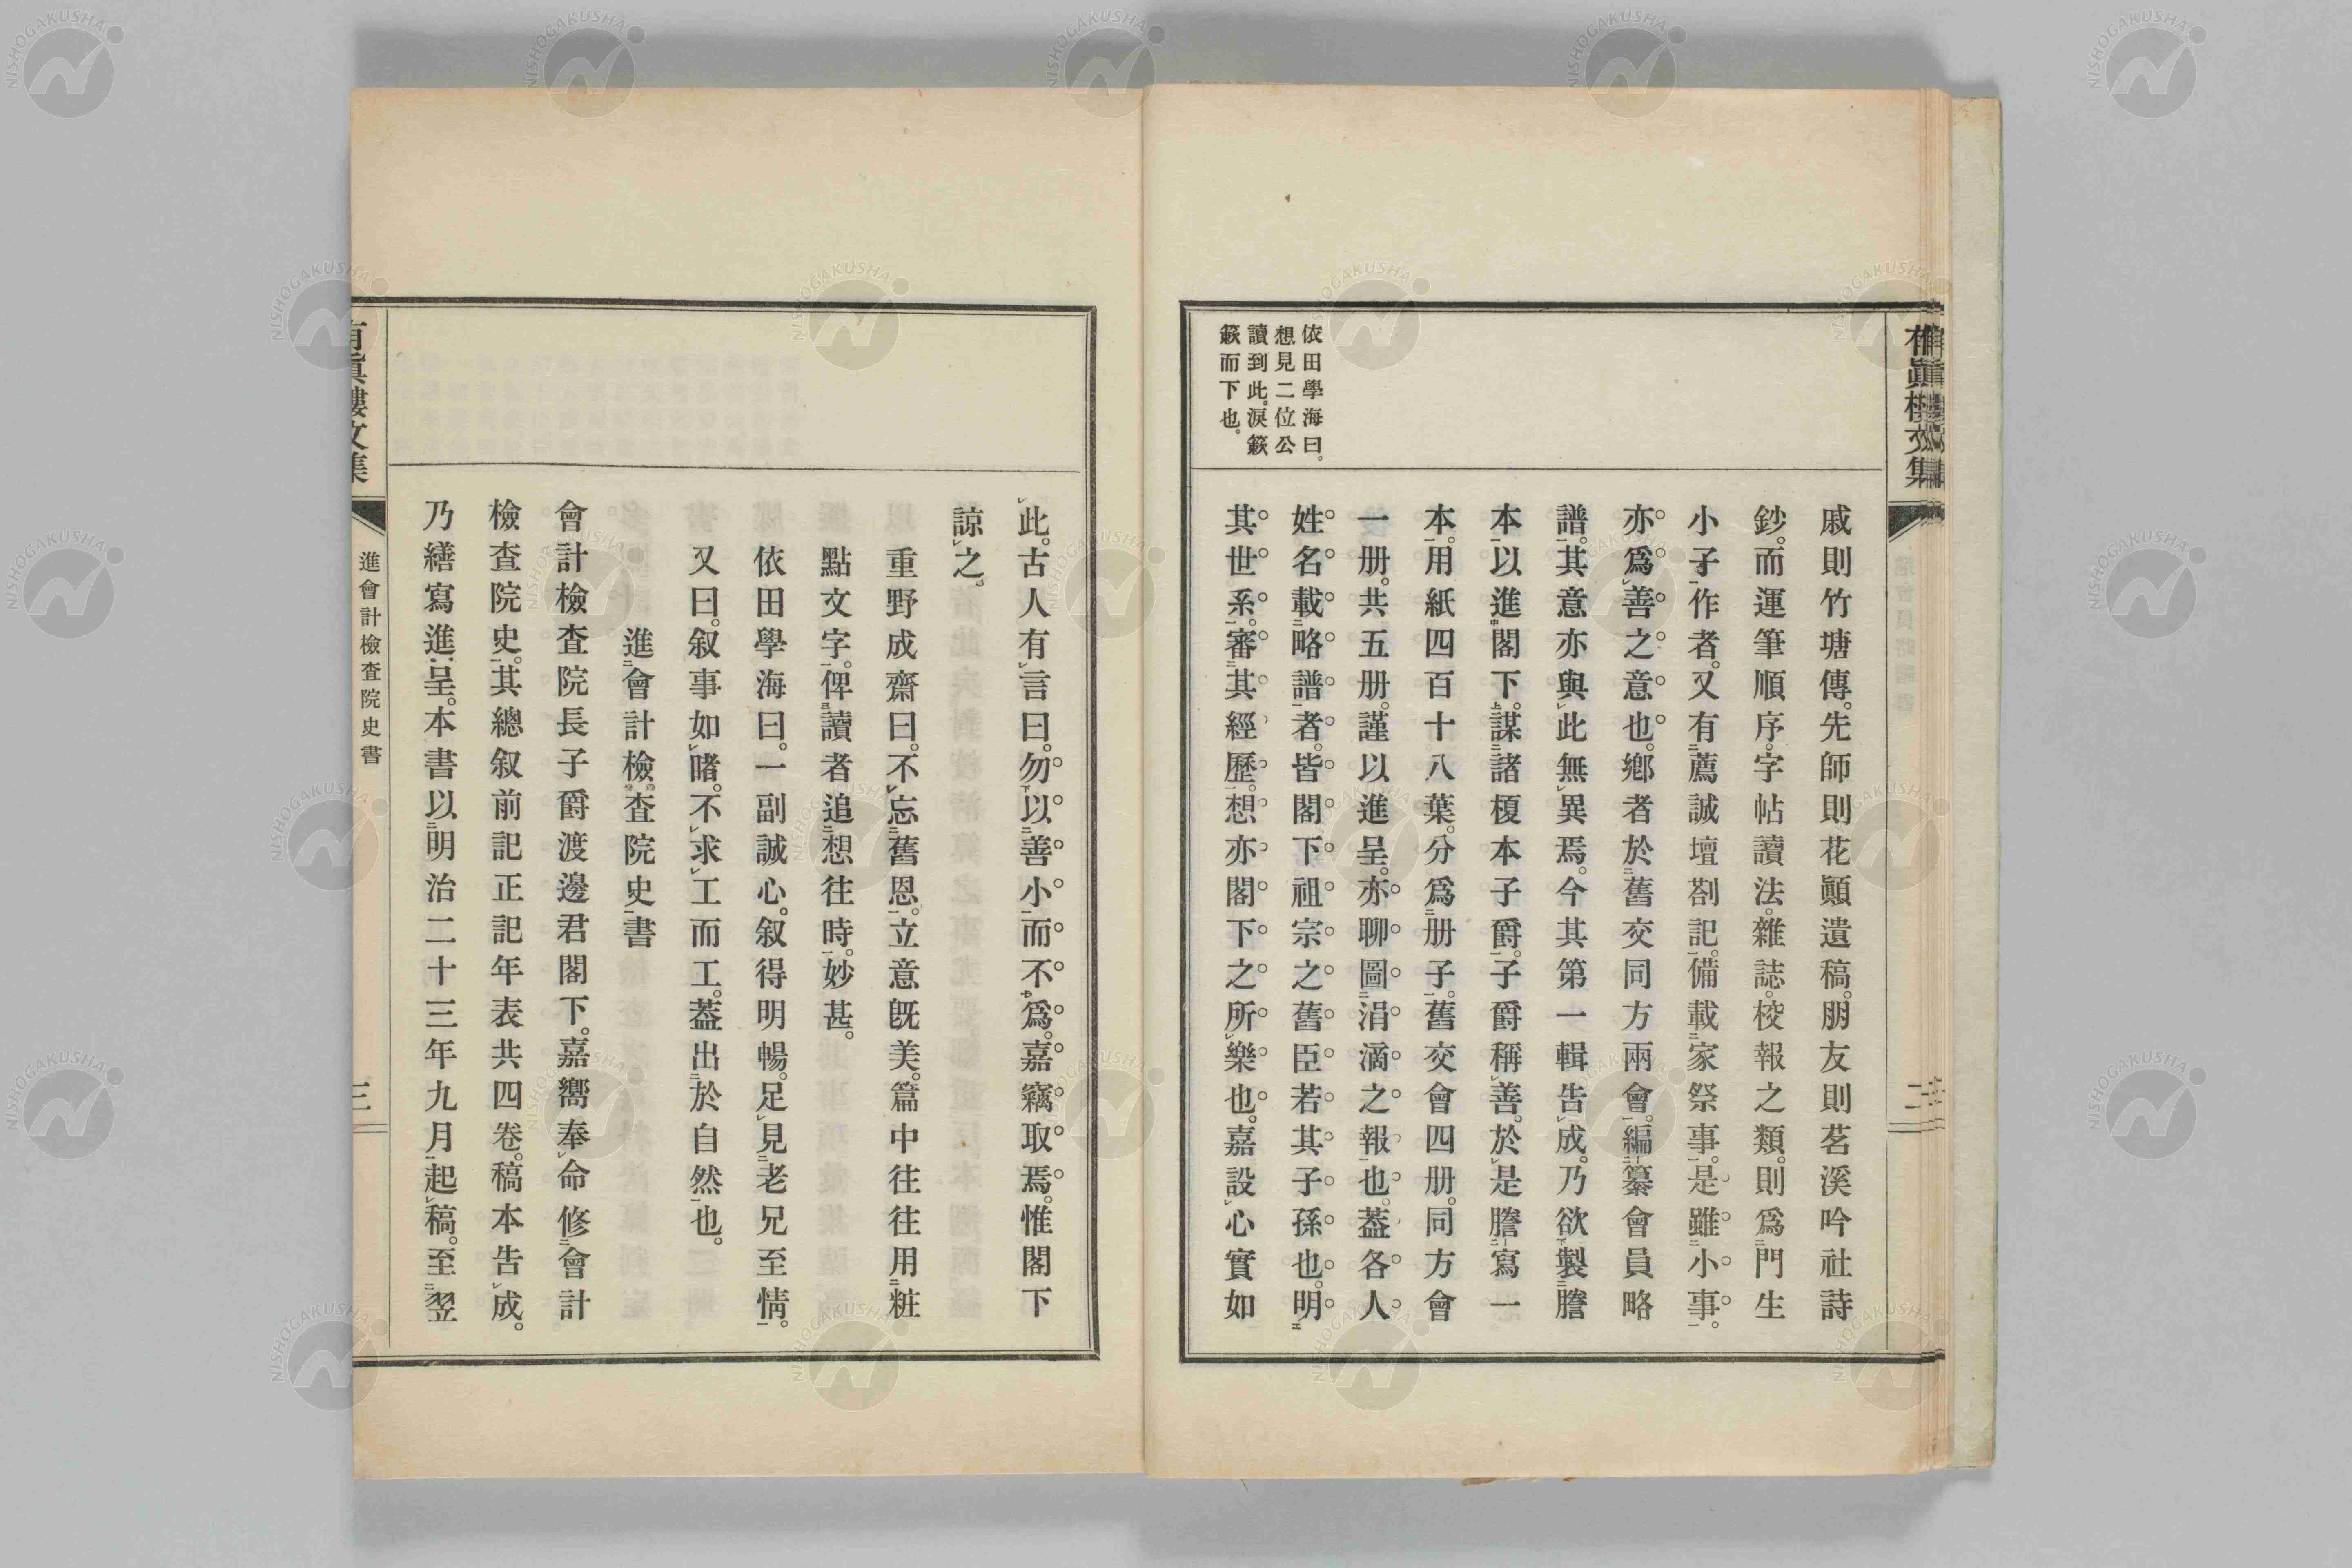 有眞樓文集
二
依田學海曰。
想見二位公
讀到此。淚簌
簌而下也。
戚則竹塘傳。先師則花顚遺稿。朋友則茗溪吟社詩
鈔。而運筆順序。字帖讀法。雜誌。校報之類。則爲門生
小子作者。又有薦誠壇剳記。備載家祭事。是雖小事。
亦爲善之意也。鄕者於舊交同方兩會。編纂會員略
譜。其意亦與此無異焉。今其第一輯告成。乃欲製謄
本以進閣下。謀諸榎本子爵。子爵稱善。於是謄寫一
本。用紙四百十八葉。分爲册子。舊交會四册。同方會
一册。共五册。謹以進呈。亦聊圖涓滴之報也。蓋各人
姓名載略譜者。皆閣下祖宗之舊臣若其子孫也。明
其世系。審其經歷。想亦閣下之所樂也。嘉設心實如
此。古人有言曰。勿以善小而不爲。嘉竊取焉。惟閣下
諒之。
重野成齋曰。不忘舊恩。立意旣美。篇中往往用粧
點文字。俾讀者追想往時。妙甚。
依田學海曰。一副誠心。叙得明暢。足見老兄至情。
又曰。叙事如睹。不求工而工。蓋出於自然也。
進會計檢査院史書
會計檢査院長子爵渡邊君閣下。嘉嚮奉命修會計
檢査院史。其總叙前記正記年表共四卷。稿本告成。
乃繕寫進呈。本書以明治二十三年九月起稿。至翌
有眞樓文集
進會計檢査院史書
三
NISHOGAKUSHA